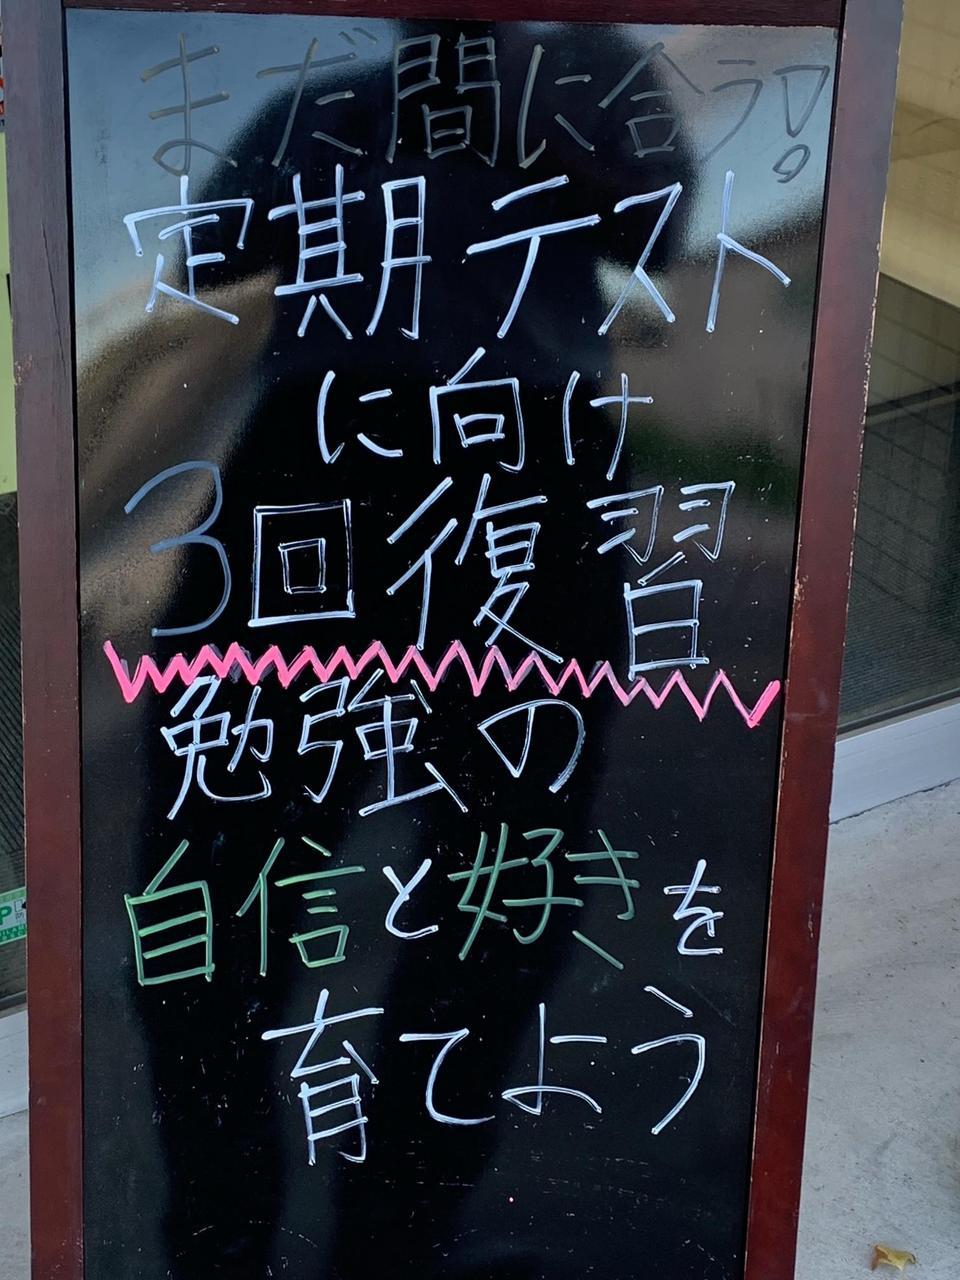 まだ間に合う!
定期テスト
に向け
3回復習
勉強の
自信と好きを
育てよう
P